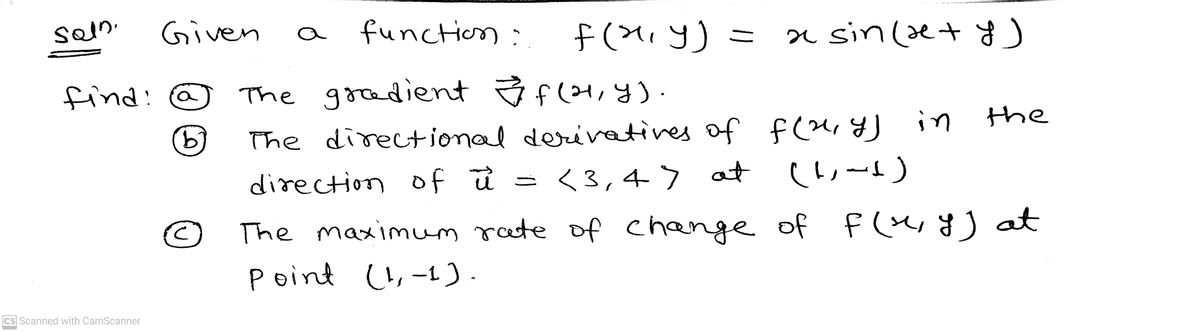 Soln. Given a function: f(x, y) = x sin(x + y)
find: (a) The gradient ∇⃗ f(x, y).
(b) The directional derivatives of f(x, y) in the
direction of u⃗ = <3, 4> at (1, -1)
(c) The maximum rate of change of f(x, y) at
point (1, -1).
CS Scanned with CamScanner